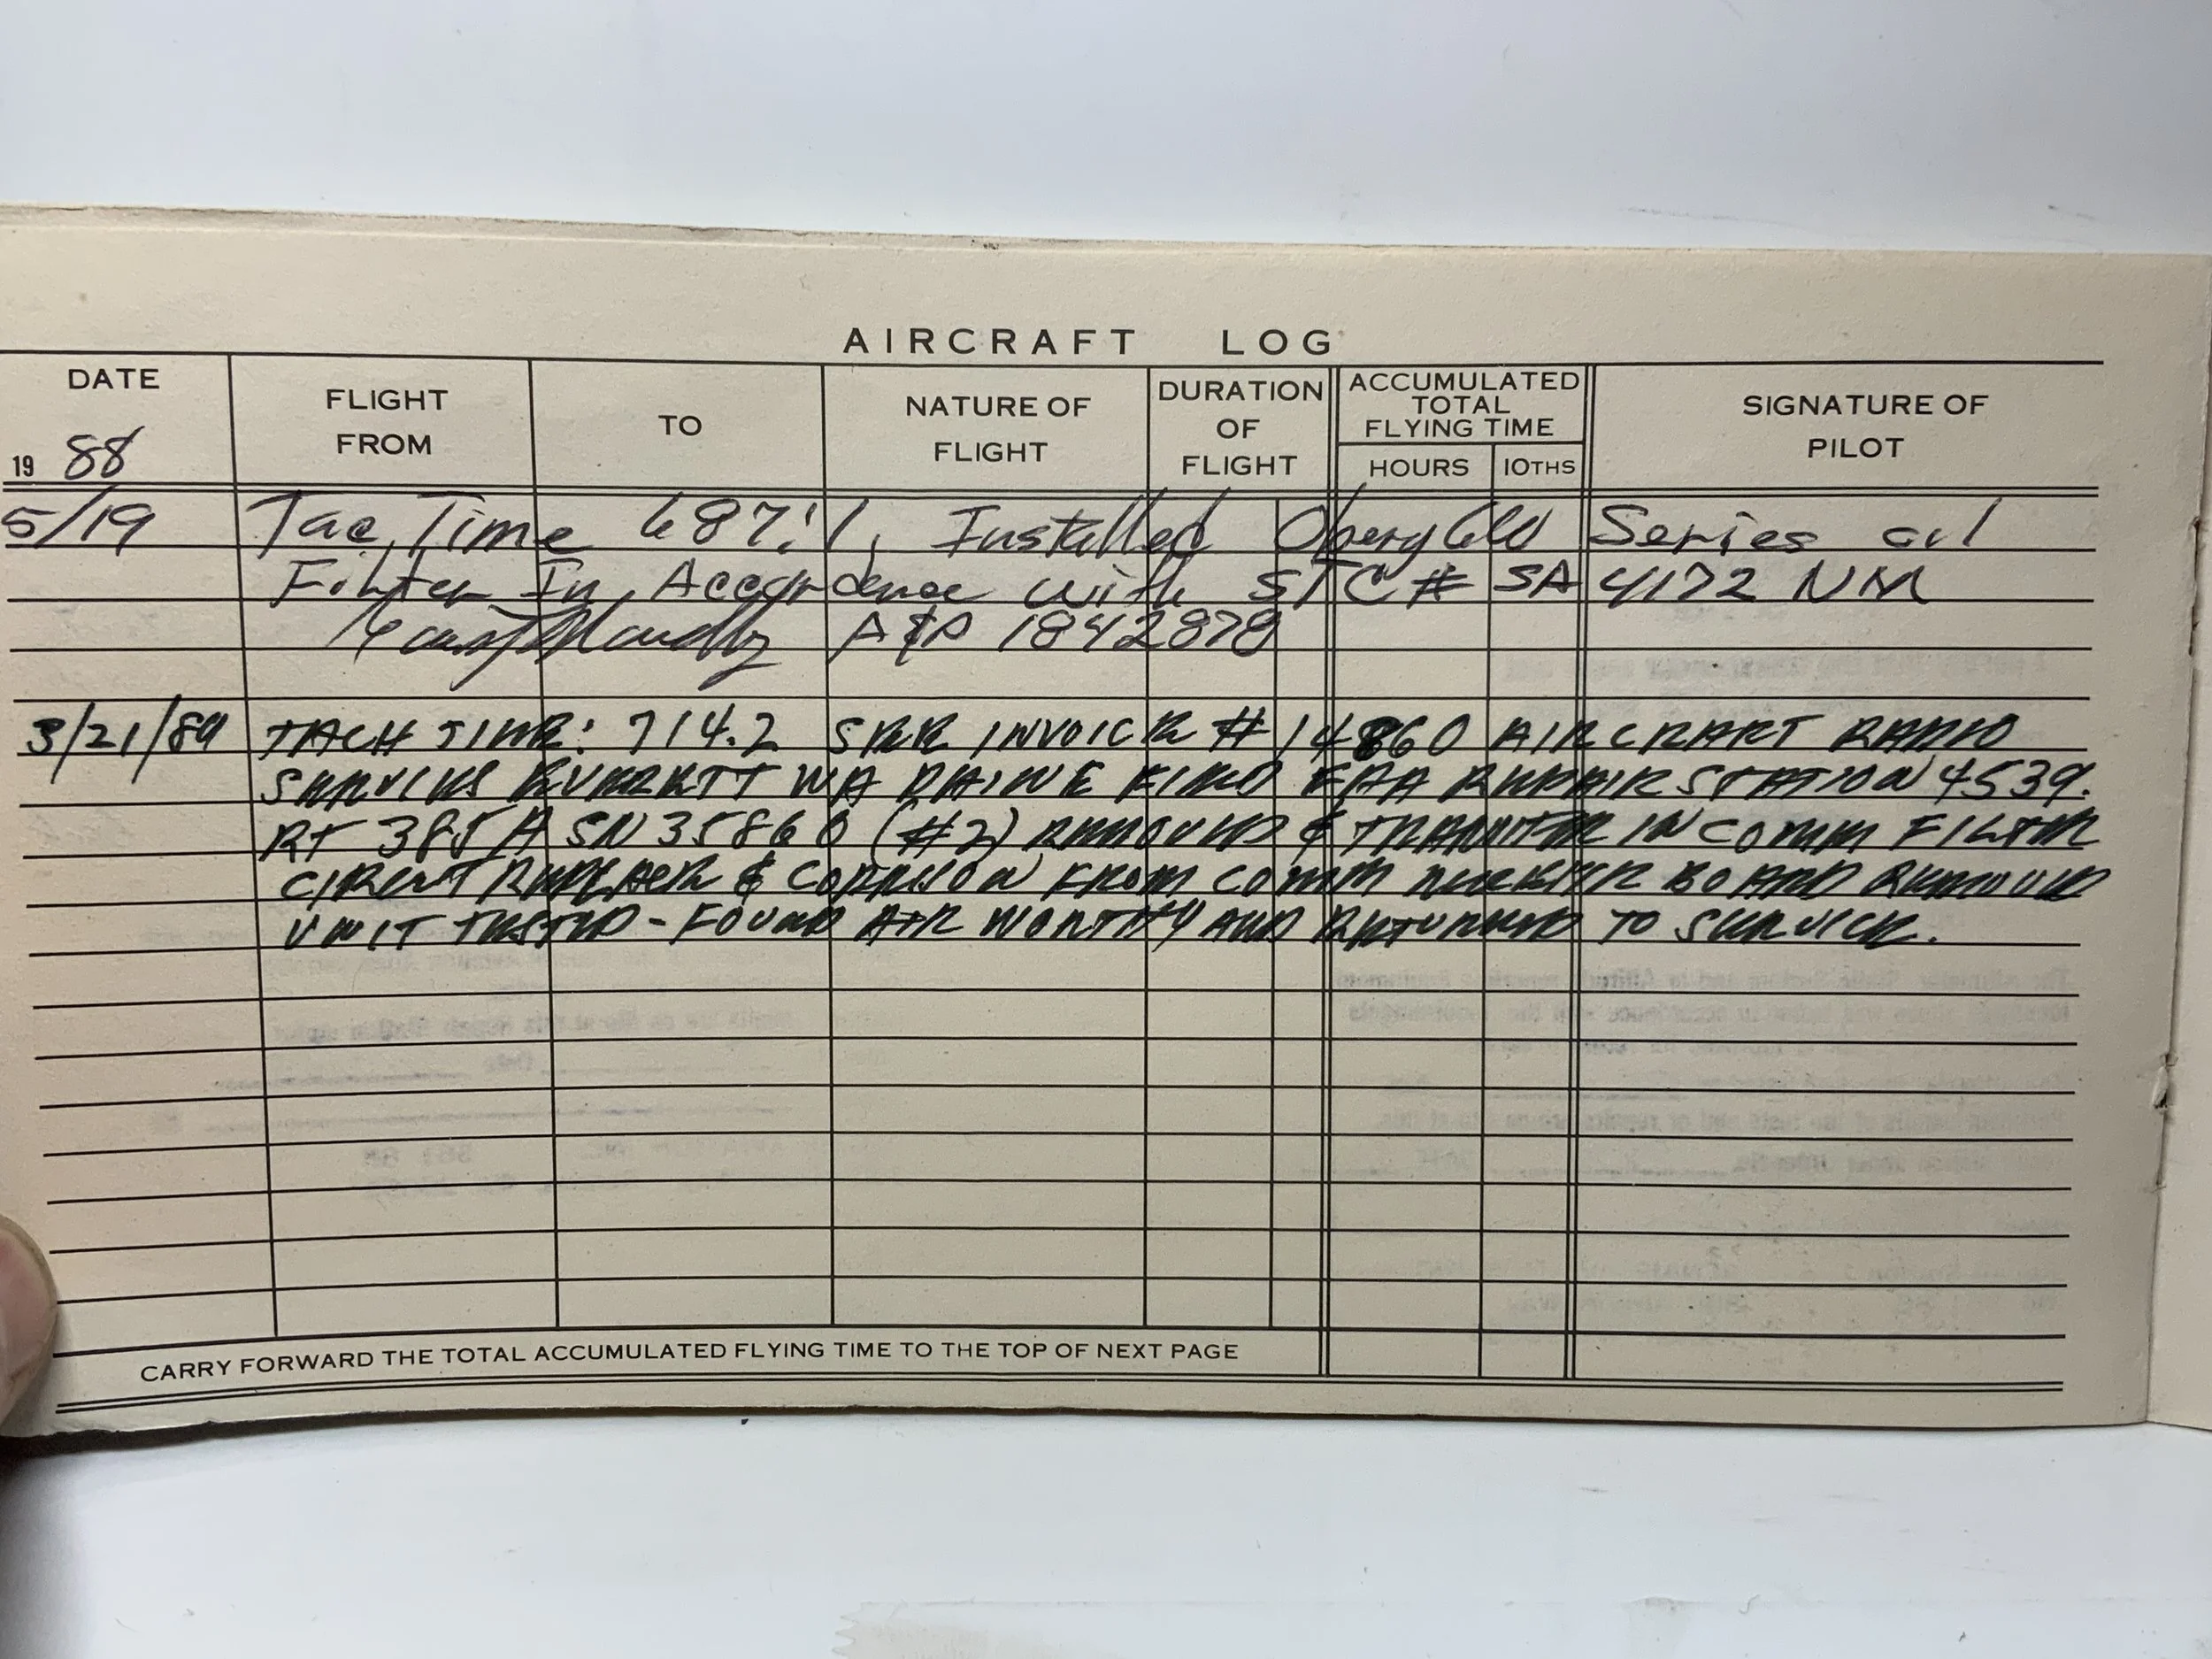 AIRCRAFT LOG
DATE
19 88
FLIGHT FROM
TO
NATURE OF FLIGHT
DURATION OF FLIGHT
ACCUMULATED TOTAL FLYING TIME
HOURS
10THS
SIGNATURE OF PILOT
5/19 Tac Time 687.1, Installed Series oil
Filter In Accordence with STC # SA 4172 NM
A&P 1842878
3/21/89 TACH TIME: 714.2 SEE INVOICE # 14860 AIRCRAFT RADIO
SERVICES EVERETT WA PAINE FIELD FAA REPAIR STATION 4539.
RT 385A SN 35860 (#2) REMOVED & IN COMM FILTER
CIRCUIT REPLACED & CORROSION FROM COMM BOARD REMOVED
UNIT TESTED - FOUND AIR WORTHY AND RETURNED TO SERVICE.
CARRY FORWARD THE TOTAL ACCUMULATED FLYING TIME TO THE TOP OF NEXT PAGE